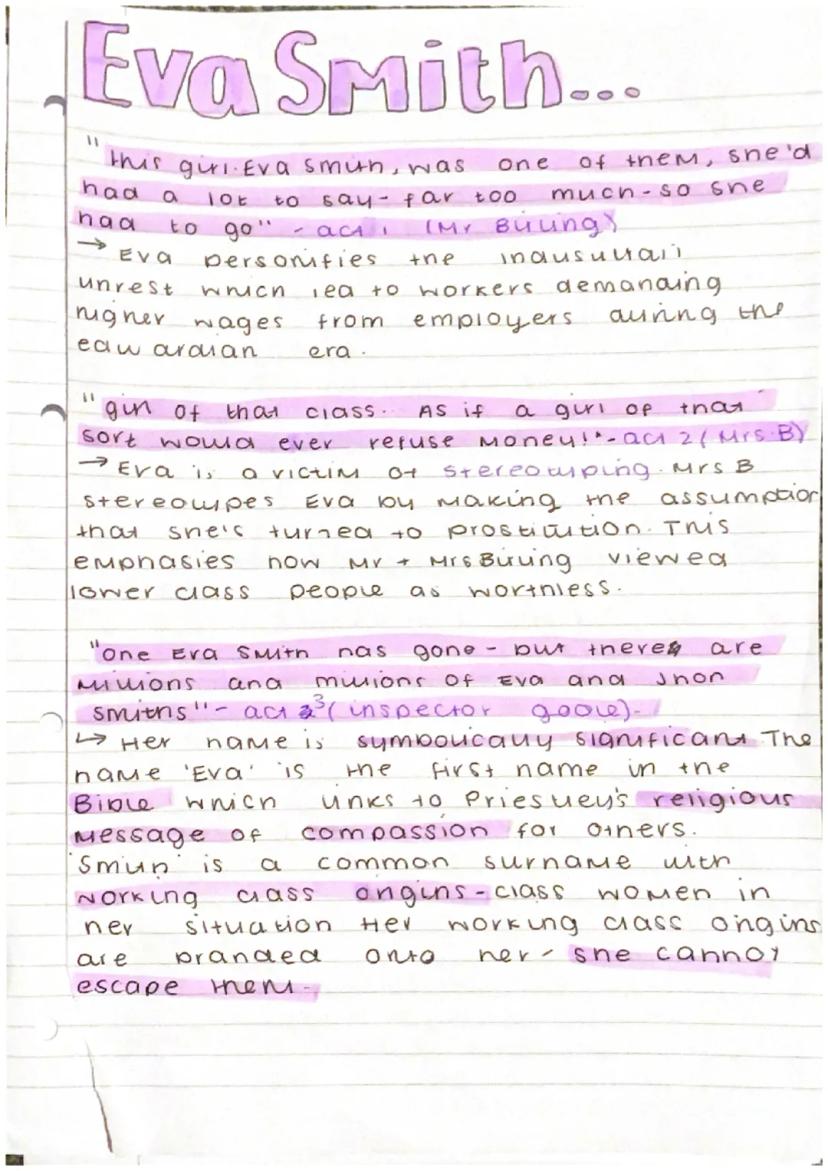 Eva Smith...
"this girl. Eva Smith, was one of them, she'd
had a lot to say - far too much - so she
had to go" - act 1 (Mr Birling)
→ Eva personifies the industrial
unrest which lead to workers demanding
higher wages from employers during the
edwardian era.
"girl of that class.. As if a girl of that
sort would ever refuse money!" - act 2 (Mrs.B)
→ Eva is a victim of stereotyping. Mrs B
stereotypes Eva by making the assumption
that she's turned to prostitution. This
emphasies how Mr + Mrs Birling viewed
lower class people as worthless.
"one Eva Smith has gone - but there are
millions and millions of Eva and Jhon
smiths" - act 3 (inspector goole).
↳ Her name is symbolically significant. The
name 'Eva' is the first name in the
Bible which links to Priestley's religious
message of compassion for others.
'Smith' is a common surname with
working class origins - class women in
her situation Her working class origins
are branded onto her - she cannot
escape them.